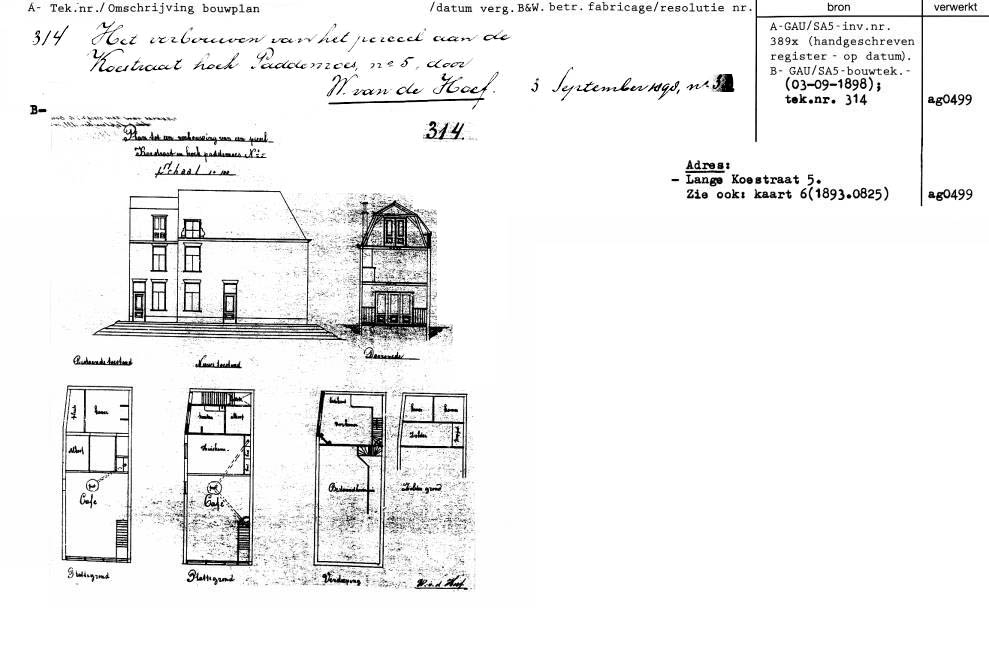 A- Tek.nr./Omschrijving bouwplan /datum verg. B&W. betr. fabricage/resolutie nr.
bron
verwerkt
314 Het verbouwen van het perceel aan de
Koestraat hoek Paddemoes, no 5, door
W. van de Hoef. 3 September 1898, no
A-GAU/SA5-inv.nr.
389x (handgeschreven
register - op datum).
B- GAU/SA5-bouwtek.-
(03-09-1898);
tek.nr. 314
ag0499
B-
314.
Plan tot een verbouwing van een perceel
Koestraat en hoek paddemoes No 5
Schaal 1 a 100
Adres:
- Lange Koestraat 5.
Zie ook: kaart 6(1893.0825)
ag0499
Bestaande toestand
Nieuwe toestand
Doorsnede
Café
Café
Keuken
Zolder
Zolder grond
Plattegrond
Plattegrond
Verdieping
W. v. d. Hoef